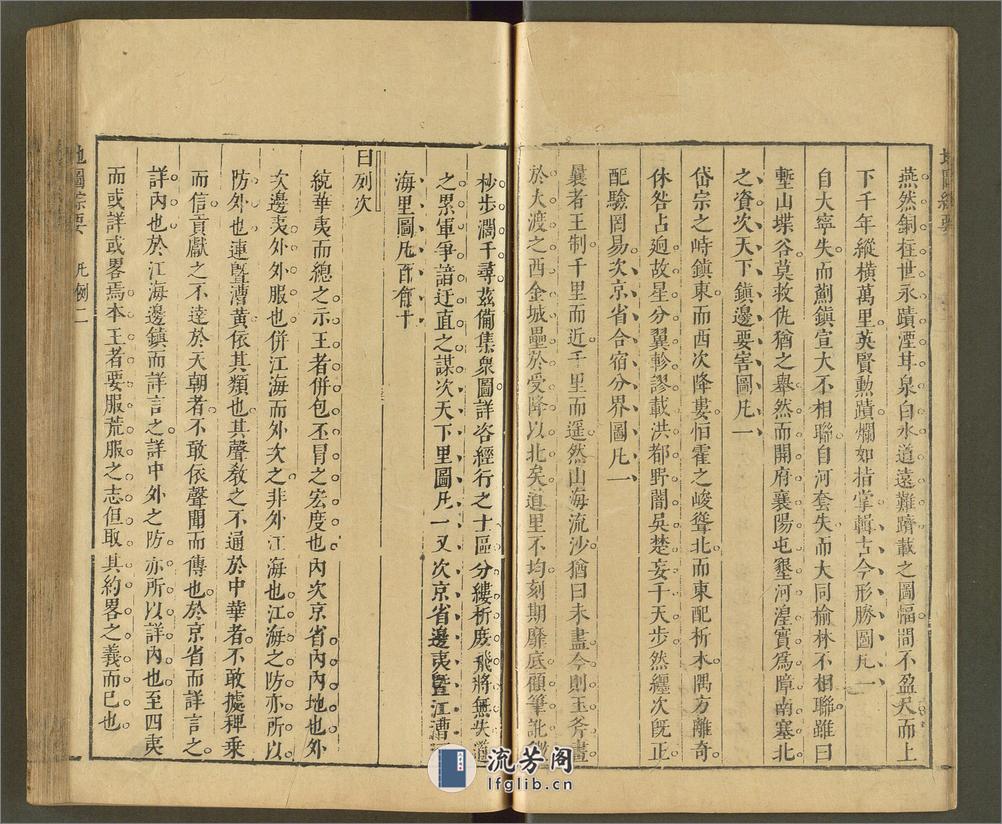 燕然銅柱世永蹟湮耳泉白水道遠難躋載之圖幅間不盈天而上
下千年縱橫萬里英賢勲蹟爛如指掌輯古今形勝圖凡一
自大寧失而薊鎮宣大不相聯自河套失而大同榆林不相聯雖曰
塹山堞谷莫救仇猶之舉然而開府襄陽屯墾河湟實爲障南塞北
之資次天下鎮邊要害圖凡一
岱宗之峙鎮東而西次降婁恒霍之峻聳北而東配析木隅方離奇
休咎占逈故星分翼軫謬載洪都野闇吳楚妄千天步然纏次旣正
配驗罔易次京省合宿分界圖凡一
曩者王制千里而近千里而遥然山海流沙猶曰未盡今則玉斧畫
於大渡之西金城壘於受降以北矣道里不均刻期靡底顧筆訛
杪步濶千尋茲備集衆圖詳咨經行之士區分縷析庻飛將無失道
之累軍爭諳迂直之謀次天下里圖凡一又次京省邊夷曁江漕
海里圖凡百
曰列次
統華夷而總之示王者併包丕冒之宏度也内次京省内内地也外
次邊夷外外服也併江海而外次之非外江海也江海之防亦所以
防外也連曁漕黄依其類也其聲敎之不通於中華者不敢據稗乗
而信貢獻之不逹於天朝者不敢依聲聞而傳也於京省而詳言之
詳内也於江海邊鎮而詳言之詳中外之防亦所以詳内也至四夷
而或詳或畧焉本王者要服荒服之志但取其約畧之義而已也
地圖綜要 凡例 二
流芳阁
lfglib.cn